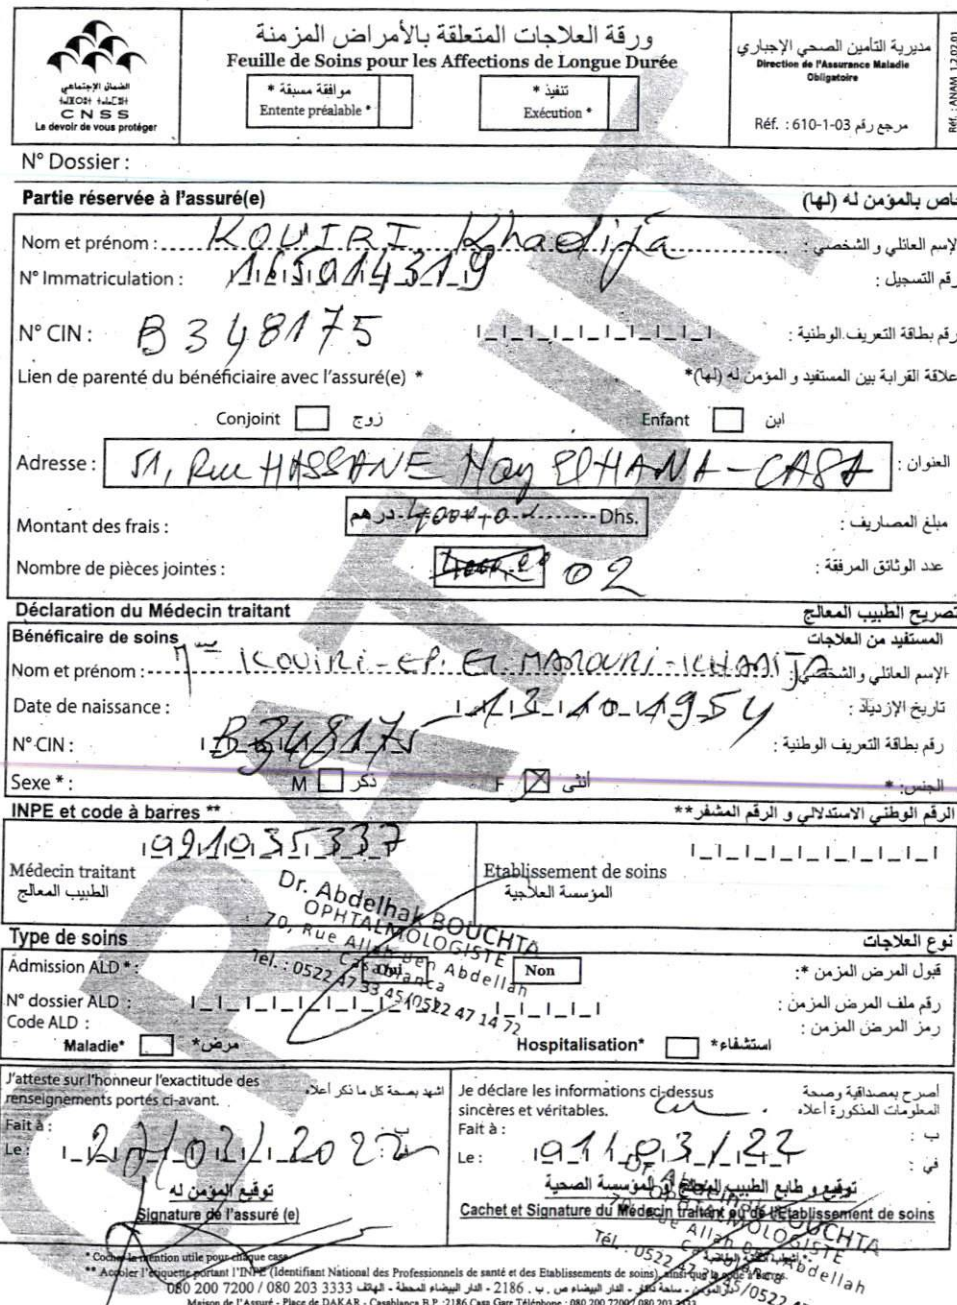 الضمان الإجتماعي
CNSS
Le devoir de vous protéger
ورقة العلاجات المتعلقة بالأمراض المزمنة
Feuille de Soins pour les Affections de Longue Durée
موافقة مسبقة *
Entente préalable *
تنفيذ *
Exécution *
مديرية التأمين الصحي الإجباري
Direction de l'Assurance Maladie
Obligatoire
Réf. : 610-1-03 مرجع رقم
Réf. : ANAM 1.2.02.01
N° Dossier :
Partie réservée à l'assuré(e) خاص بالمؤمن له (لها)
Nom et prénom : KOUIRI Khadija الإسم العائلي و الشخصي :
N° Immatriculation : 165014319 رقم التسجيل :
N° CIN : B348175 رقم بطاقة التعريف الوطنية :
Lien de parenté du bénéficiaire avec l'assuré(e) * علاقة القرابة بين المستفيد و المؤمن له (لها)*
Conjoint زوج Enfant ابن
Adresse : 51, Rue HASSANE Hay ElHANA - CASA العنوان :
Montant des frais : درهم Dhs. مبلغ المصاريف :
Nombre de pièces jointes : 02 عدد الوثائق المرفقة :
Déclaration du Médecin traitant تصريح الطبيب المعالج
Bénéficaire de soins المستفيد من العلاجات
Nom et prénom : KOUIRI - EP. EL MAROURI - KHADIJA الإسم العائلي والشخصي :
Date de naissance : 13 10 1954 تاريخ الإزدياد :
N° CIN : B348175 رقم بطاقة التعريف الوطنية :
Sexe * : M ذكر F أنثى الجنس: *
INPE et code à barres ** الرقم الوطني الاستدلالي و الرقم المشفر**
091035337
Médecin traitant
الطبيب المعالج
Etablissement de soins
المؤسسة العلاجية
Dr. Abdelhak BOUCHTA
OPHTALMOLOGISTE
70, Rue Allah Ben Abdellah
Casablanca
Tél. : 0522 47 33 45/0522 47 14 72
Type de soins نوع العلاجات
Admission ALD * : Oui Non قبول المرض المزمن *:
N° dossier ALD : رقم ملف المرض المزمن :
Code ALD : رمز المرض المزمن :
Maladie* مرض* Hospitalisation* استشفاء*
J'atteste sur l'honneur l'exactitude des
renseignements portés ci-avant.
اشهد بصحة كل ما ذكر أعلاه
Fait à : ب :
Le : 27/02/2022
توقيع المؤمن له
Signature de l'assuré (e)
Je déclare les informations ci-dessus
sincères et véritables.
أصرح بمصداقية وصحة
المعلومات المذكورة أعلاه
Fait à : ب :
Le : 01/03/22 في :
توقيع و طابع الطبيب المعالج او المؤسسة الصحية
Cachet et Signature du Médecin traitant ou de l'Etablissement de soins
Dr. Abdelhak BOUCHTA
OPHTALMOLOGISTE
70, Rue Allah Ben Abdellah
Casablanca
Tél. : 0522 47 33 45/0522 47
* Cocher la mention utile pour chaque case
** Accoler l'étiquette portant l'INPE (Identifiant National des Professionnels de santé et des Etablissements de soins), ainsi que le code à barres.
080 200 7200 / 080 203 3333 الهاتف - الدار البيضاء المحطة - 2186 . ص . ب
Maison de l'Assuré - Place de DAKAR - Casablanca B.P. :2186 Casa Gare Téléphone : 080 200 7200 / 080 203 3333
GRATUIT